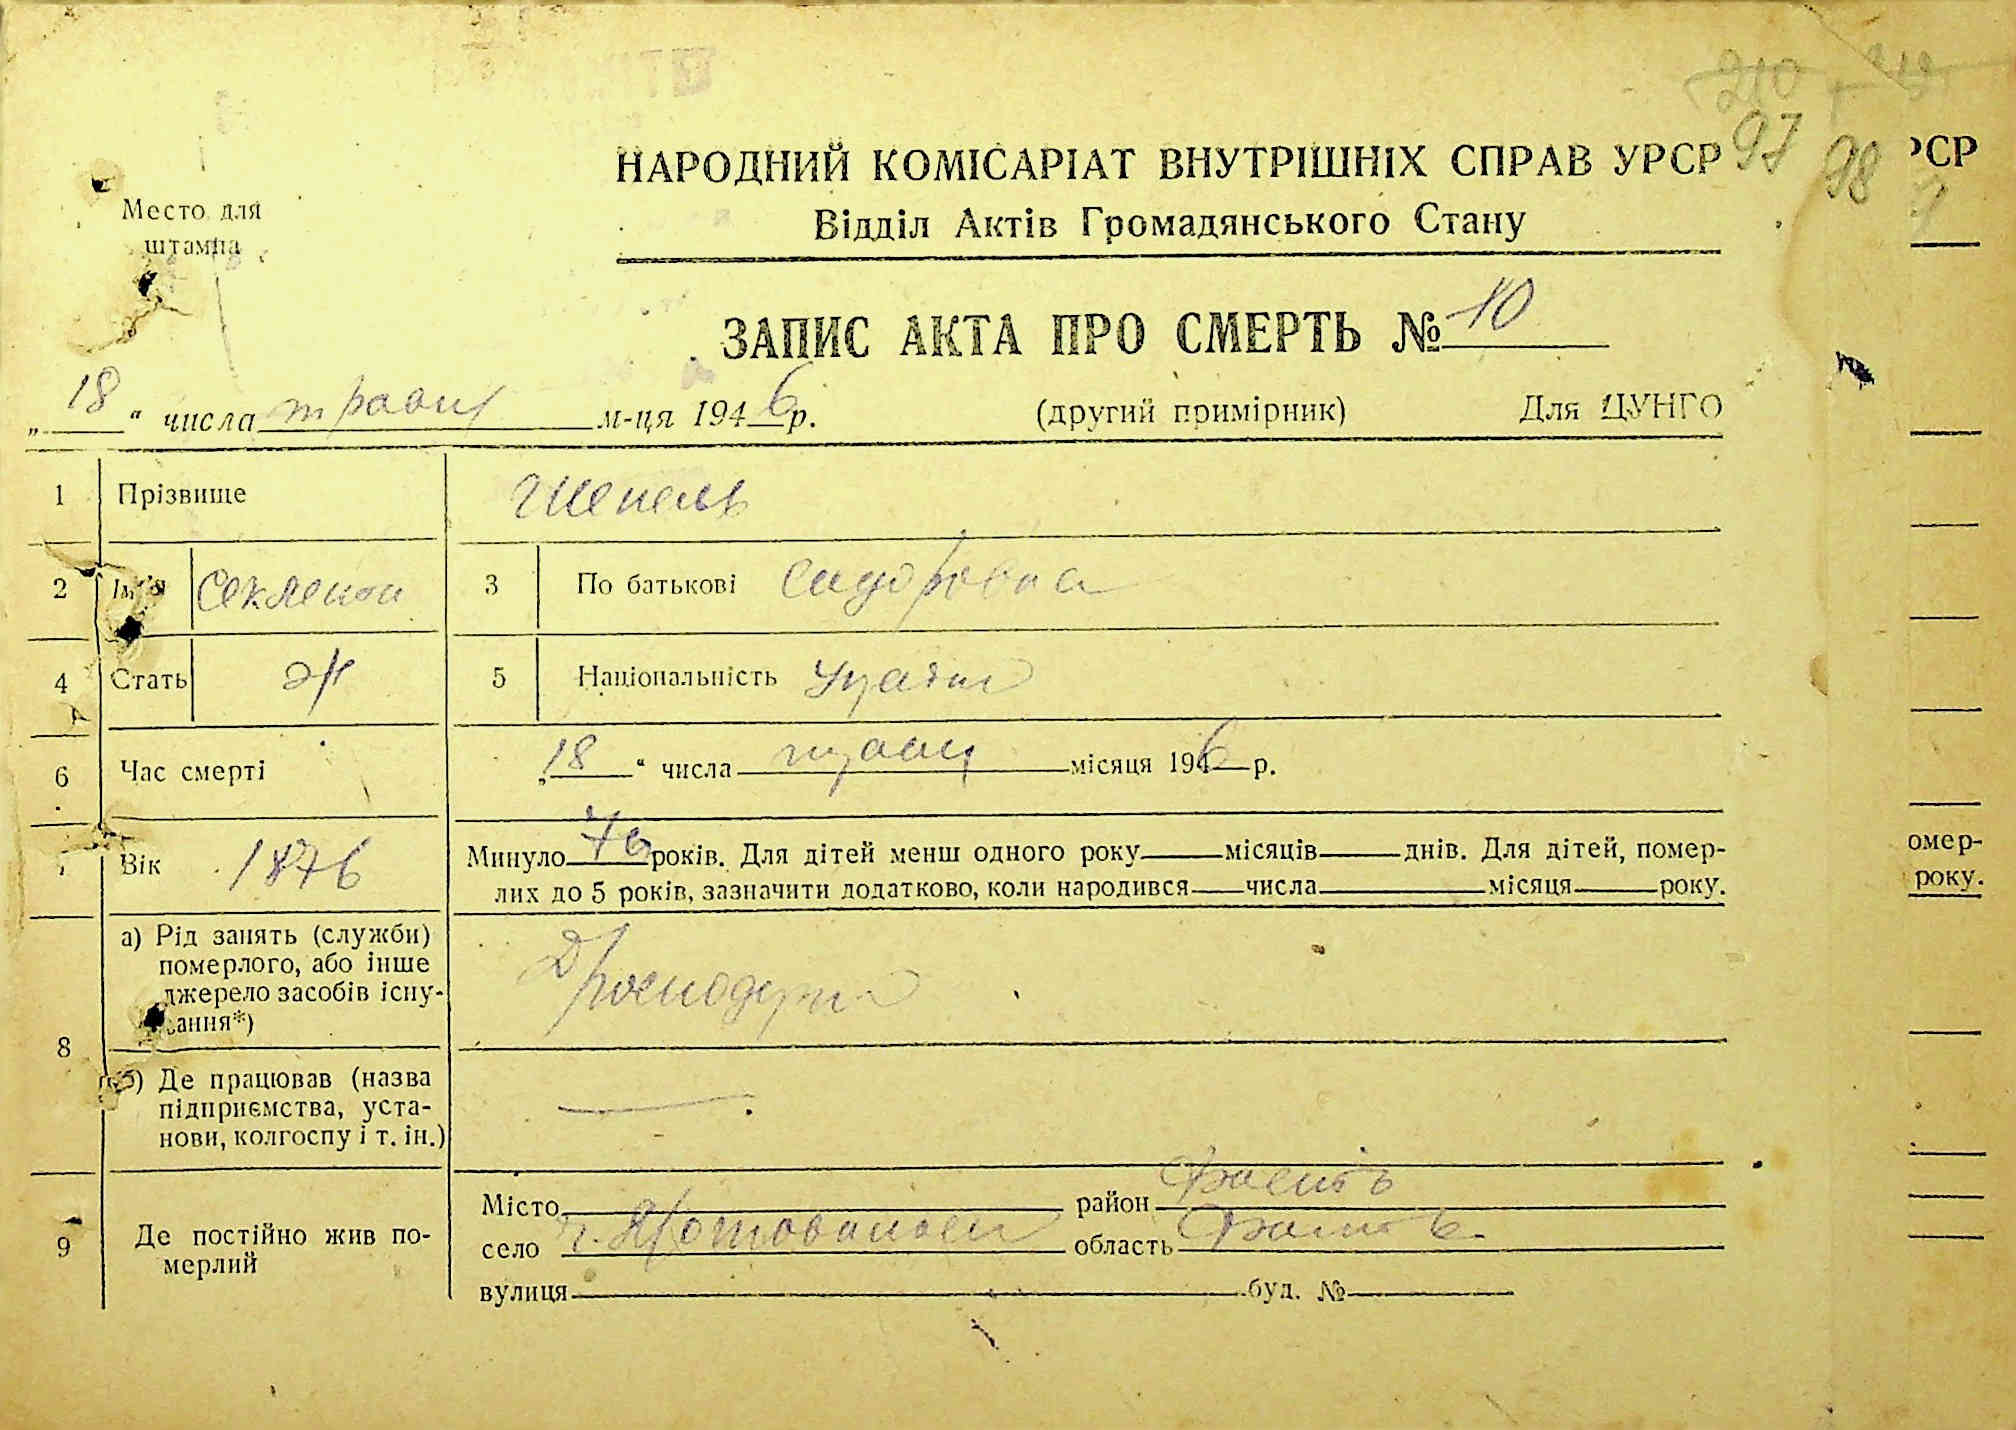 210
97 98
НАРОДНИЙ КОМІСАРІАТ ВНУТРІШНІХ СПРАВ УРСР
РСР
Место для
штампа
Відділ Актів Громадянського Стану
ЗАПИС АКТА ПРО СМЕРТЬ № 10
„18“ числа травня м-ця 1946 р. (другий примірник) Для ЦУНГО
1 Прізвище Шепель
2 Ім'я Секлета 3 По батькові Сидоровна
4 Стать ж 5 Національність
6 Час смерті „18“ числа травня місяця 1946 р.
7 Вік 1876 Минуло 76 років. Для дітей менш одного року місяців днів. Для дітей, помер-
лих до 5 років, зазначити додатково, коли народився числа місяця року.
омер-
року.
8 а) Рід занять (служби)
померлого, або інше
джерело засобів існу-
вання*)
Д/господарка
б) Де працював (назва
підприємства, уста-
нови, колгоспу і т. ін.)
—
9 Де постійно жив по-
мерлий
Місто район
село область
вулиця буд. №